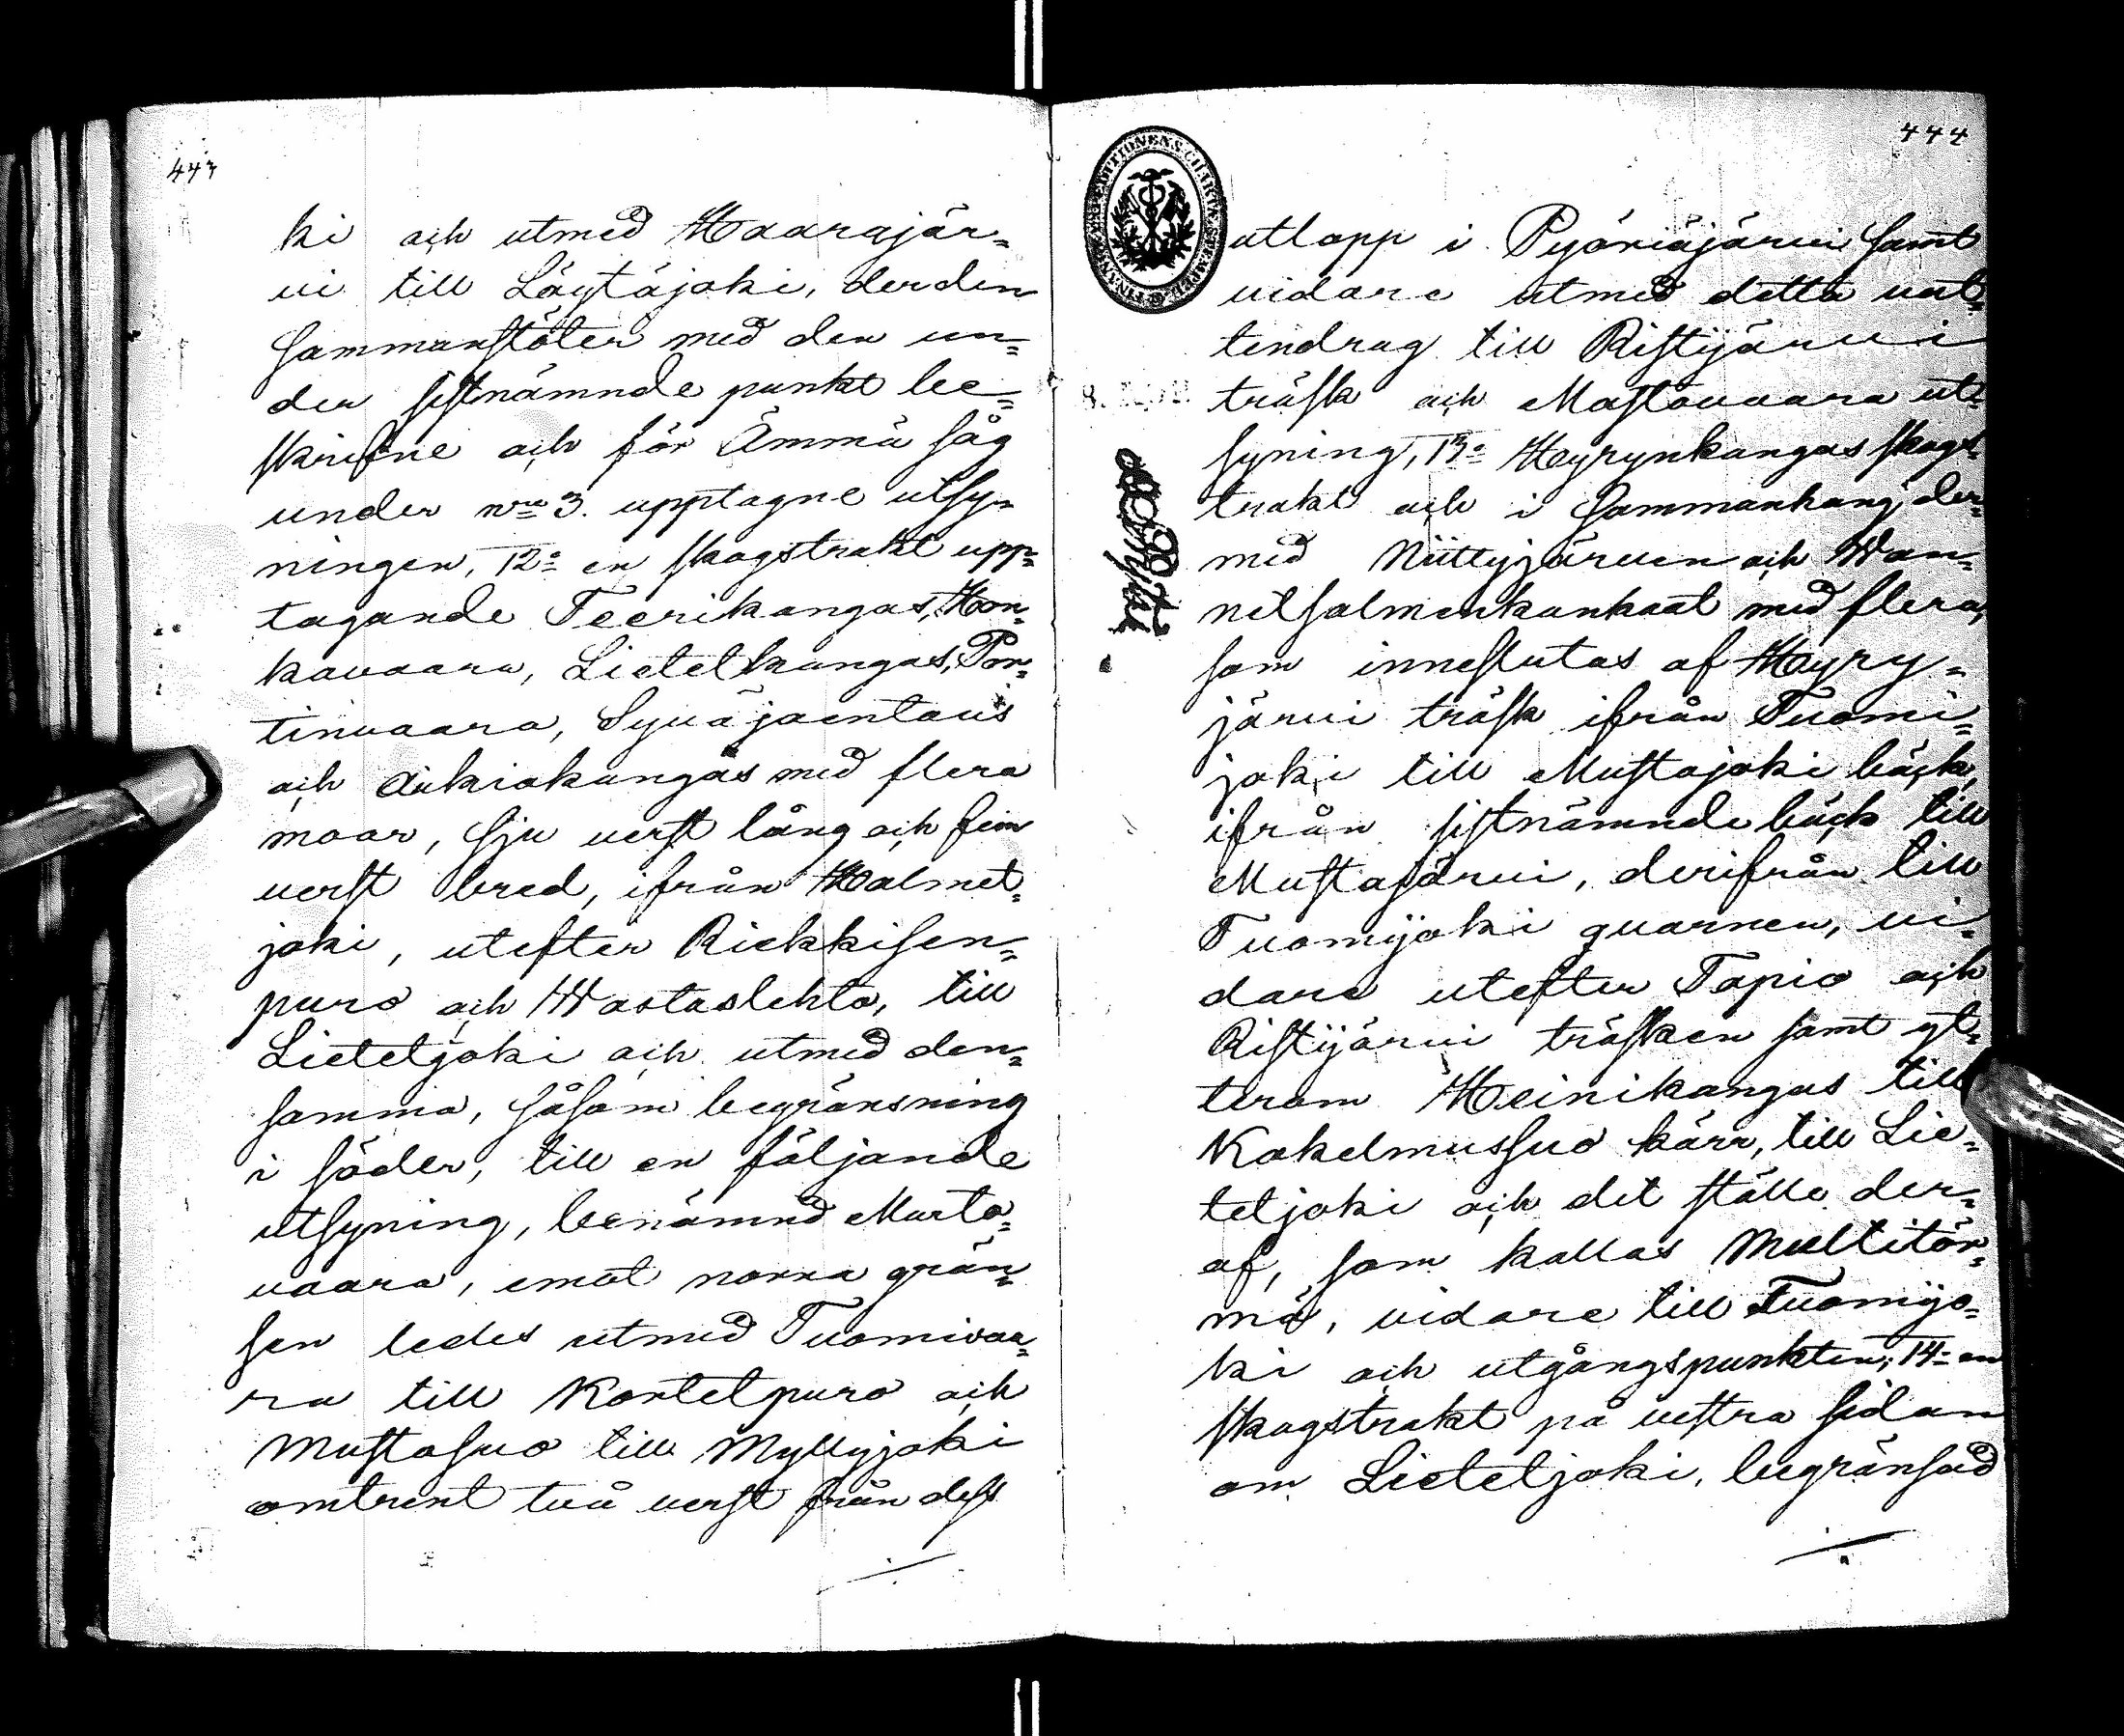 443
ki och utmed Haarajär=
vi till Löytäjoki, der den
sammanstöter med den un=
der sistnämnde punkt be=
skrifne och för Ämmä såg
under N:ro 3. upptagne utsy=
ningen, 12:o en skogstrakt upp=
tagande Teerikangas, Hon=
kavaara, Lietelkangas, Por=
tinvaara, Syväjoentaus
och Aukiokangas med flera
moar, sju verst lång och fem
verst bred, ifrån Halmet=
joki, utefter Riekkisen=
puro och Wastaslehto, till
Lieteljoki och utmed den=
samma, såsom begränsning
i söder, till en följande
utsyning, benämnd Murto=
vaara, emot norra grän=
sen ledes utmed Tuomivaa=
ra till Kortetpuro och
Mustasuo till Myllyjoki
omtrent två verst från dess
444
utlopp i Pyöriäjärvi samt
vidare utmed detta vat=
tendrag till Ristijärvi
träsk och Mastovaara ut=
syning, 13:o Hyrynkangas skogs=
trakt och i sammanhang der=
med Niittyjärven och Wan=
nelsalmenkankaat med flera,
som inneslutas af Hyry=
järvi träsk ifrån Tuomi=
joki till Mustajoki bäck,
ifrån sistnämnde bäck till
Mustajärvi, derifrån till
Tuomijoki qvarnen, vi=
dare utefter Tapio och
Ristijärvi träsken samt yt=
terom Heinikangas till
Kokelmussuo kärr, till Lie=
teljoki och det ställe der=
af, som kallas Multitör=
mä, vidare till Tuomijo=
ki och utgångspunkten; 14:o en
skogstrakt på vestra sidan
om Lieteljoki, begränsad